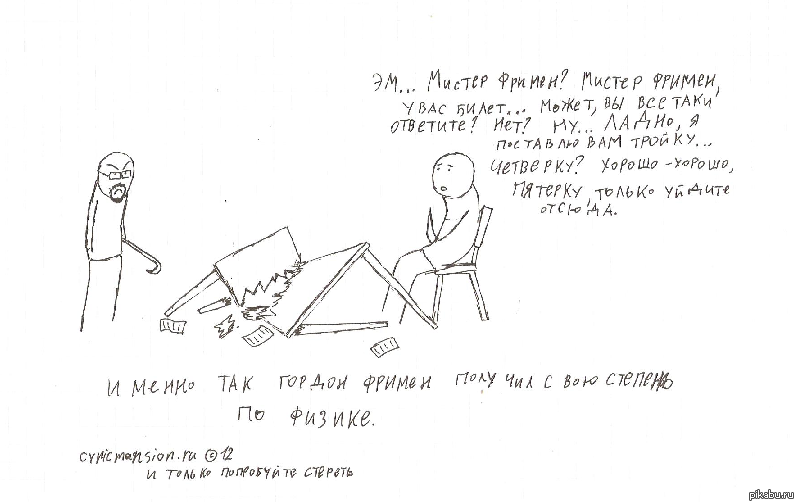 эм... Мистер Фримен? Мистер Фримен,
у вас билет... может, вы все таки
ответите? Нет? Ну... ЛАДНО, я
поставлю вам тройку...
четверку? хорошо-хорошо,
пятерку, только уйдите
отсюда.
именно так Гордон Фримен получил свою степень
по физике.
cynicmansion.ru ©12
и только попробуйте стереть
pikabu.ru